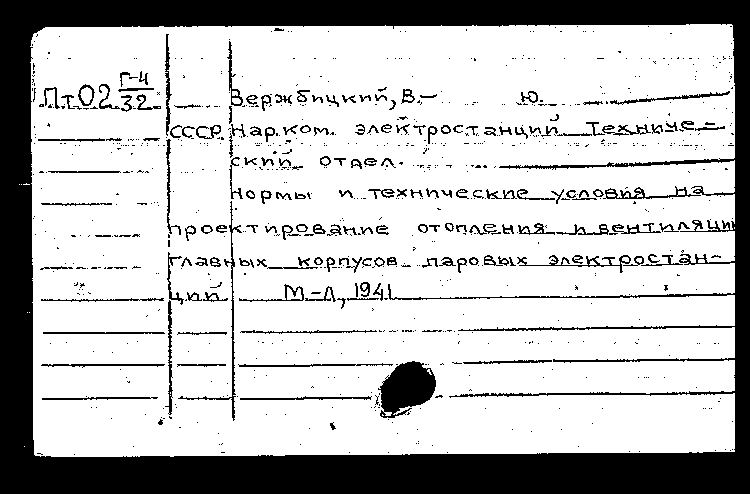 Пт02 Г-4/32
Вержбицкий, В.- Ю.
СССР. Нар.ком. электростанций Техниче-
ский отдел.
Нормы и технические условия на
проектирование отопления и вентиляции
главных корпусов паровых электростан-
ций М-Л, 1941